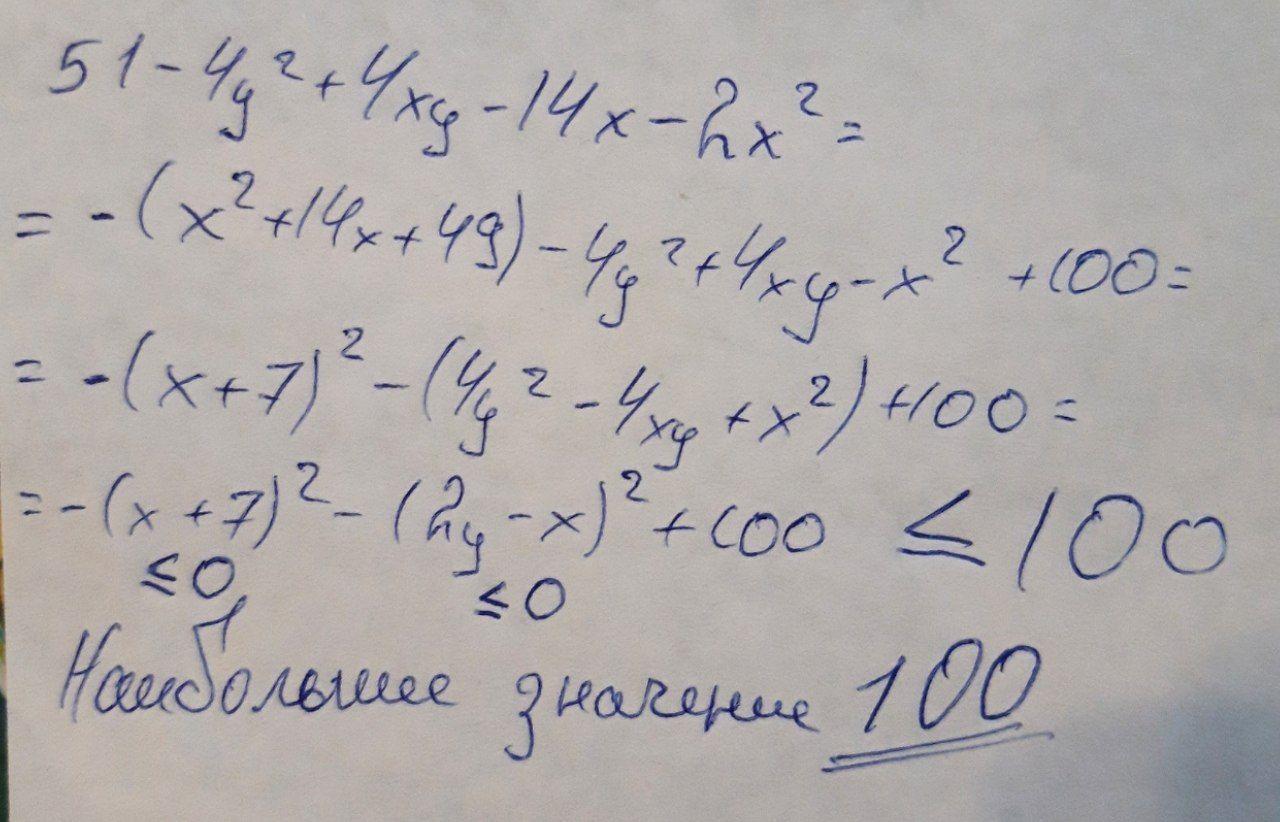 51-4y²+4xy-14x-2x²=
=-(x²+14x+49)-4y²+4xy-x²+100=
=-(x+7)²-(4y²-4xy+x²)+100=
=-(x+7)²-(2y-x)²+100 ≤100
≤0 ≤0
Наибольшее значение 100